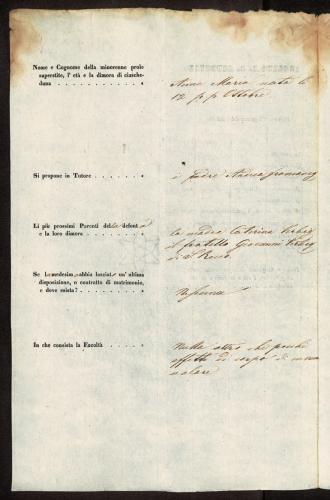 Nome e Cognome della minorenne prole
superstite, l' età e la dimora di ciasche-
duna
Anna Maria nata li
12 p. p. Ottobre
Si propone in Tutore
il padre Andrea
Li più prossimi Parenti della defonta
e la loro dimora
la madre Caterina
il fratello Giovanni
di S. Rocco
Se la medesima abbia lasciat un' ultima
disposizione, o contratto di matrimonio,
e dove esista?
Nessuna
In che consista la Facoltà
Nulla altro che poche
effetti di corpo di niun
valore